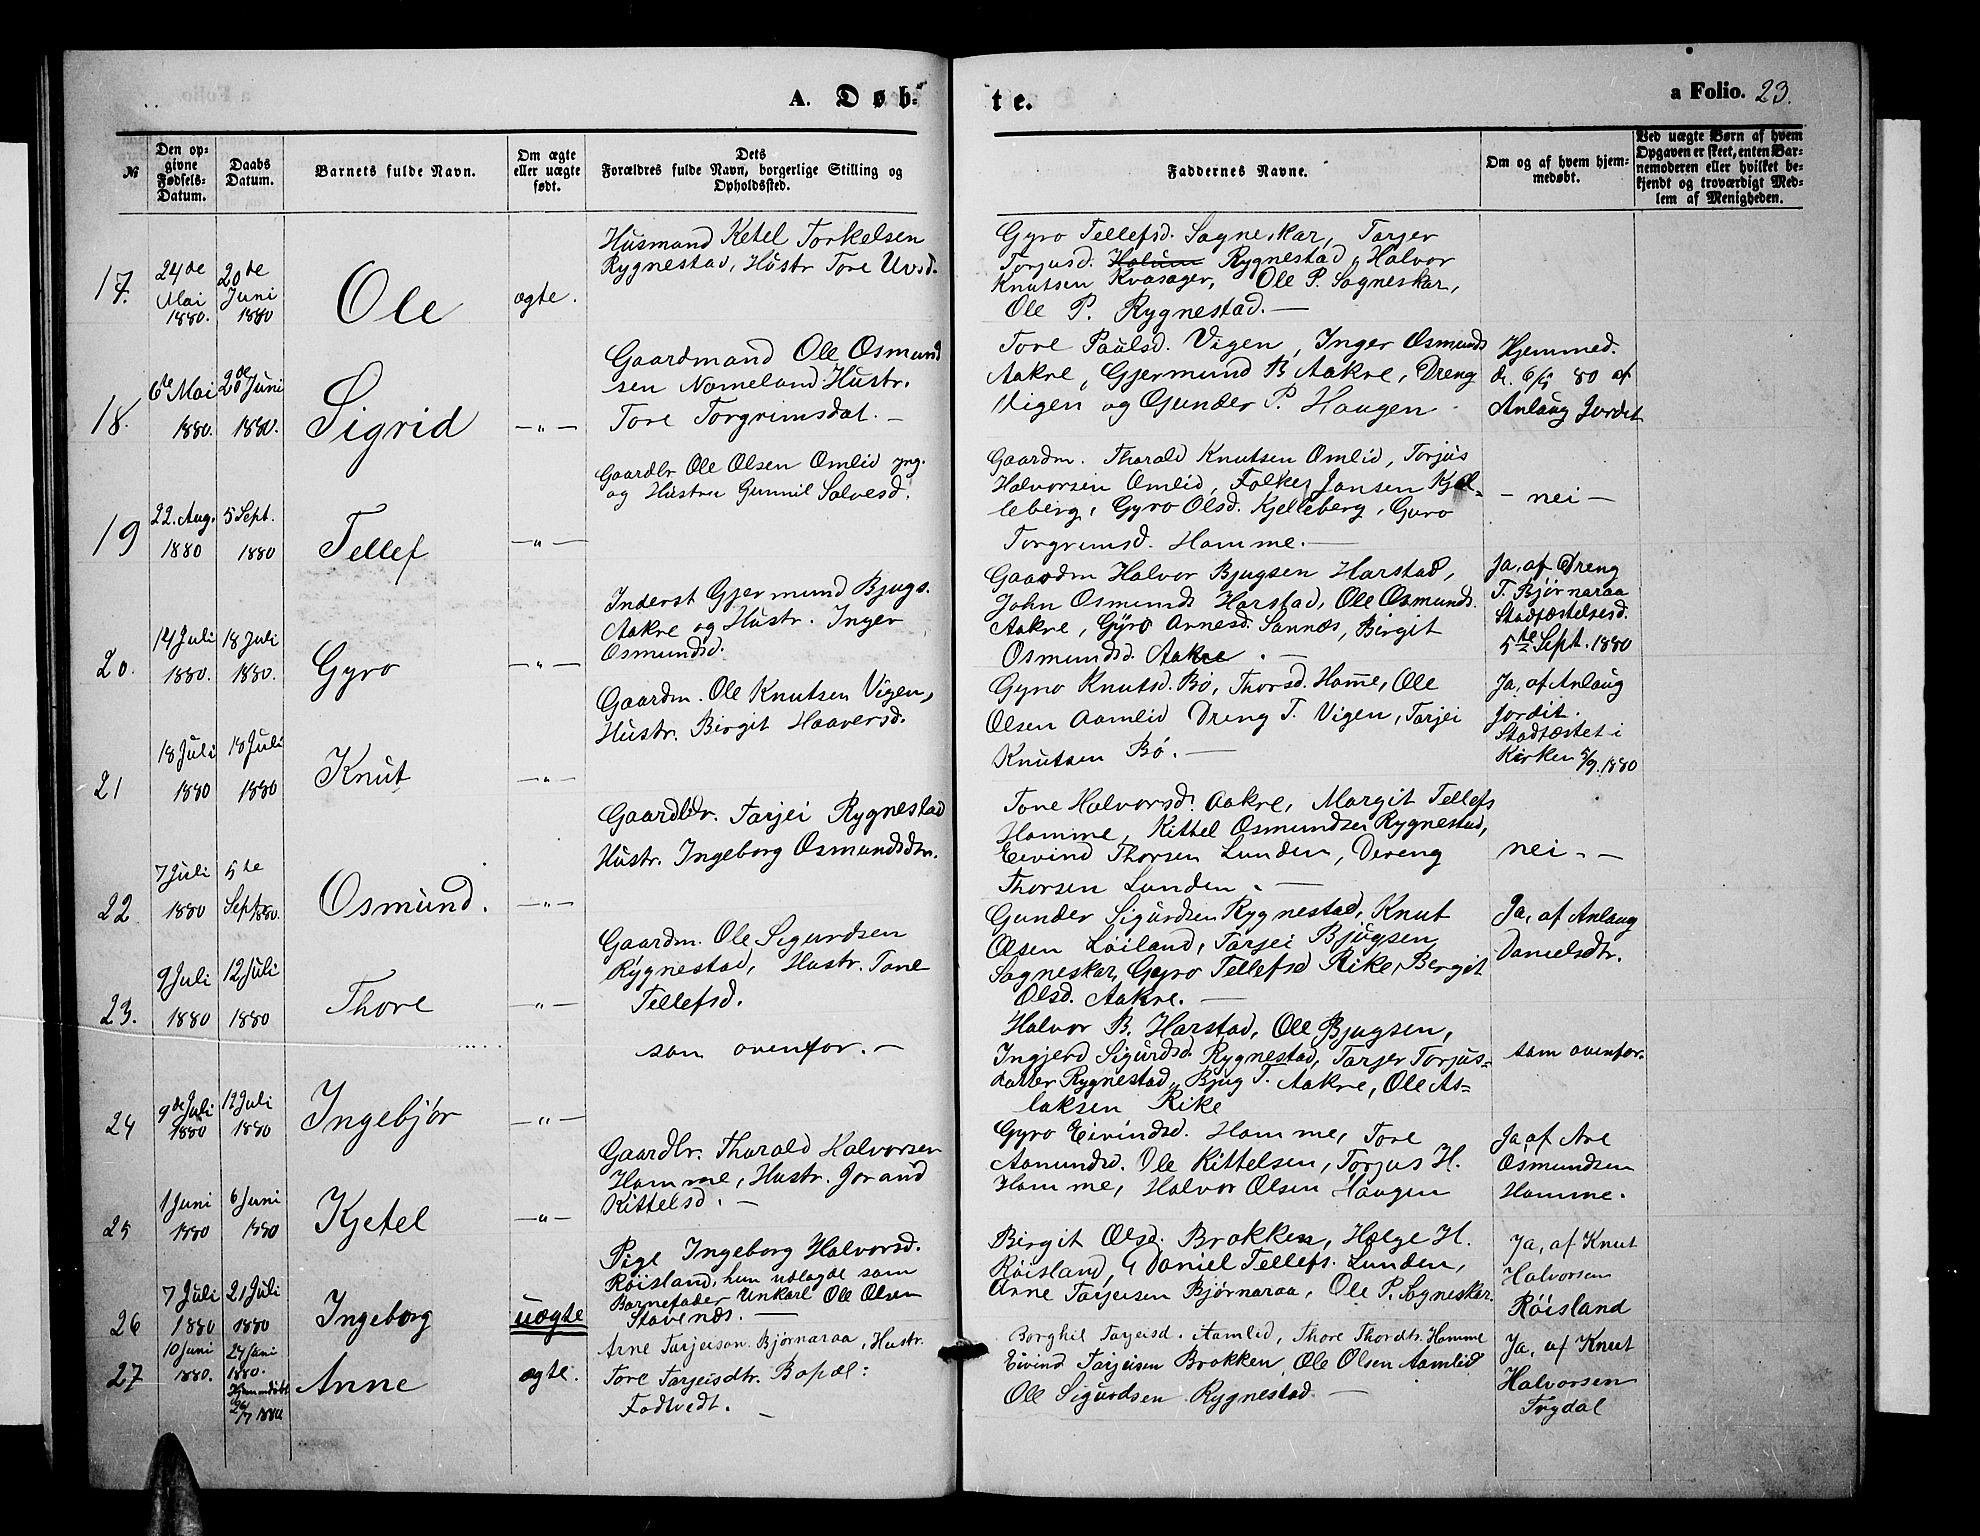 A. Døb-
te.
a Folio. 23.
№
Den op-
givne
Fødsels-
Datum.
Daabs
Datum.
Barnets fulde Navn.
Om ægte
eller uægte
født.
Dets
Forældres fulde Navn, borgerlige Stilling og
Opholdssted.
Faddernes Navne.
Om og af hvem hjem-
medøbt.
Ved uægte Børn af hvem
Opgaven er skeet, enten Bar-
nemoderen eller hvilket be-
kjendt og troværdigt Med-
lem af Menigheden.
17.
24de
Mai
1880.
20de
Juni
1880
Ole
ægte.
Husmand Ketel Torkelsen
Rygnestad, Hustr Tore Uvsd.
Gyro Tellefsd. Sagneskar, Tarjer
Torjusd. Holum Rygnestad, Halvor
Knutsen Kvasager, Ole P. Sagneskar,
Ole P. Rygnestad. —
18.
6te Mai
1880.
20de Juni
1880.
Sigrid
— " —
Gaardmand Ole Osmund
sen Nomeland Hustr.
Tore Torgrimsdat. —
Tore Paulsd. Vigen, Inger Osmunds
Aakre, Gjermund B Aakre, Dreng
Vigen og Gunder P. Haugen
Hjemmed.
d. 6/5 80 af
Anlaug Jordit
19
22. Aug.
1880
5 Sept.
1880
Tellef
— " —
Gaardbr Ole Olsen Omlid yng.
og Hustru Gunnil Salvesd.
Gaardm. Thorald Knutsen Omlid, Torjus
Halvorsen Omlid, Folke Jonsen Kjel-
leberg, Gyro Olsd. Kjelleberg, Guro
Torgrimsd. Homme. —
— nei —
20.
14 Juli
1880.
18 Juli
1880.
Gyro
— " —
Inderst Gjermund Bjugs.
Aakre og Hustr. Inger
Osmundsd.
Gaardm Halvor Bjugsen Harstad,
John Osmunds Harstad, Ole Osmunds.
Aakre, Gyro Arnesd. Sannæs, Birgit
Osmundsd. Aakre. —
Ja, af Dreng
T. Bjørnaraa
Stadfæstelsesd.
5te Sept. 1880
21
18 Juli
1880
18 Juli
1880
Knut
— " —
Gaardm. Ole Knutsen Vigen,
Hustr. Birgit Haaversd.
Gyro Knutsd. Bø, Thorsd. Homme, Ole
Olsen Aamlid Dreng T. Vigen, Tarjei
Knutsen Bø. —
Ja, af Anlaug
Jordit.
Stadfæstet i
Kirken 5/9. 1880
22
7 Juli
1880
5te
Septr
1880.
Osmund.
— " —
Gaardbr. Tarjei Rygnestad
Hustr. Ingeborg Osmundsdtr.
Tone Halvorsd. Aakre, Margit Tellefs
Homme, Kittel Osmundsen Rygnestad,
Eivind Thorsen Lunden, Dereng
Thorsen Lunden. —
nei. —
23.
9 Juli
1880
12 Juli
1880
Thore
— " —
Gaardm. Ole Sigurdsen
Rygnestad, Hustr. Tone
Tellefsd.
Gunder Sigurdsen Rygnestad, Knut
Olsen Løiland, Tarjei Bjugsen
Sagneskar, Gyro Tellefsd Rike, Bergit
Olsd. Aakre. —
Ja, af Anlaug
Danielsdtr.
24
9de Juli
1880
12 Juli
1880
Ingebjør
— " —
som ovenfor. —
Halvor B. Harstad, Ole Bjugsen,
Ingjerd Sigurdsd. Rygnestad, Tarjer Torjus-
datter Rygnestad, Bjug T. Aakre, Ole As-
laksen Rike
som ovenfor.
25
1 Juni
1880
6 Juni
1880
Kjetel
— " —
Gaardbr. Thorald Halvorsen
Homme, Hustr. Jorand
Kittelsd. —
Gyro Eivindsd. Homme, Tore
Aamundsd. Ole Kittelsen, Torjus H.
Homme, Halvor Olsen Haugen
Ja, af Are
Osmundsen
Homme.
26
7 Juli
1880
21 Juli
1880
Ingeborg
uægte
Pige Ingeborg Halvorsd.
Røisland, hun udlagde som
Barnefader Unkarl Ole Olsen
Stavenæs. —
Birgit Olsd. Brokken, Helge H.
Røisland, Daniel Tellefs. Lunden,
Anne Tarjeisen Bjørnaraa, Ole P. Sagneskar.
Ja, af Knut
Halvorsen
Røisland
27
10 Juni
1880.
24 Juni
1880.
Hjemmedøbt
1880
Anne
ægte.
Arne Tarjeison Bjørnaraa, Hustr.
Tore Tarjeisdtr. Bopæl:
Fodtvedt. —
Borghil Tarjeisd. Aamlid, Thore Thordtr. Homme
Eivind Tarjeisen Brokken, Ole Olsen Aamlid
Ole Sigurdsen Rygnestad —
Ja, af Knut
Halvorsen
Trydal